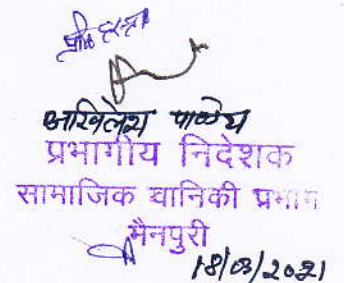 प्रति हस्ता
अखिलेश पाण्डेय
प्रभागीय निदेशक
सामाजिक वानिकी प्रभाग
मैनपुरी
18/03/2021